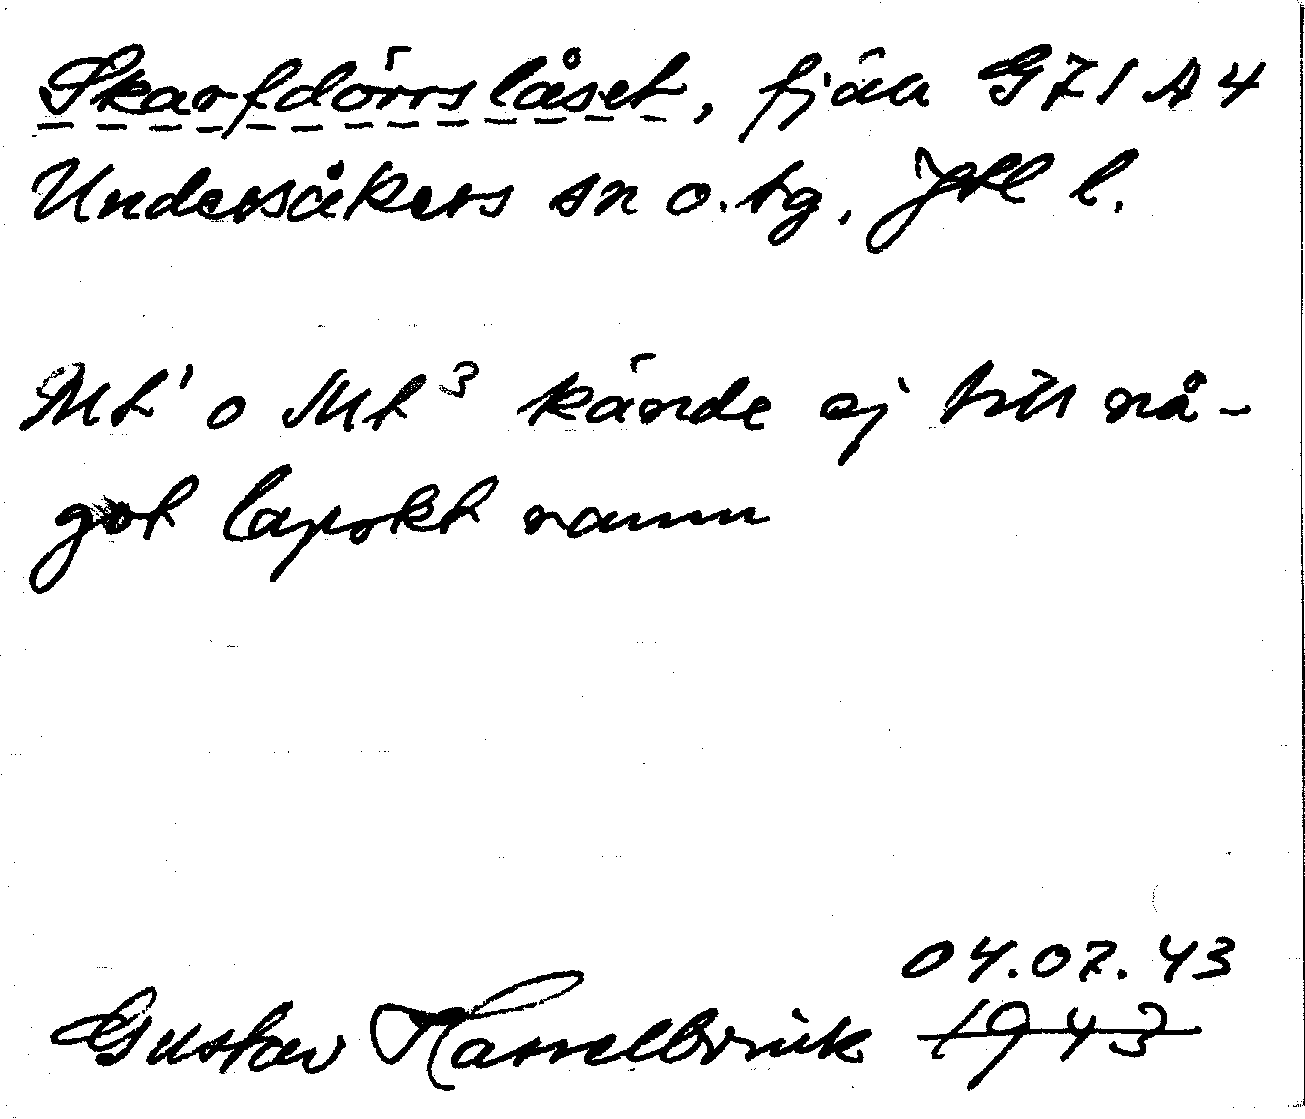 Skarfdörrslåset, fjäll G71A4
Undersåkers sn o. tg. Jtl l.
Mt¹ o Mt³ kände ej till nå-
got lapskt namn
04.07.43
Gustav Hasselbrink 1943